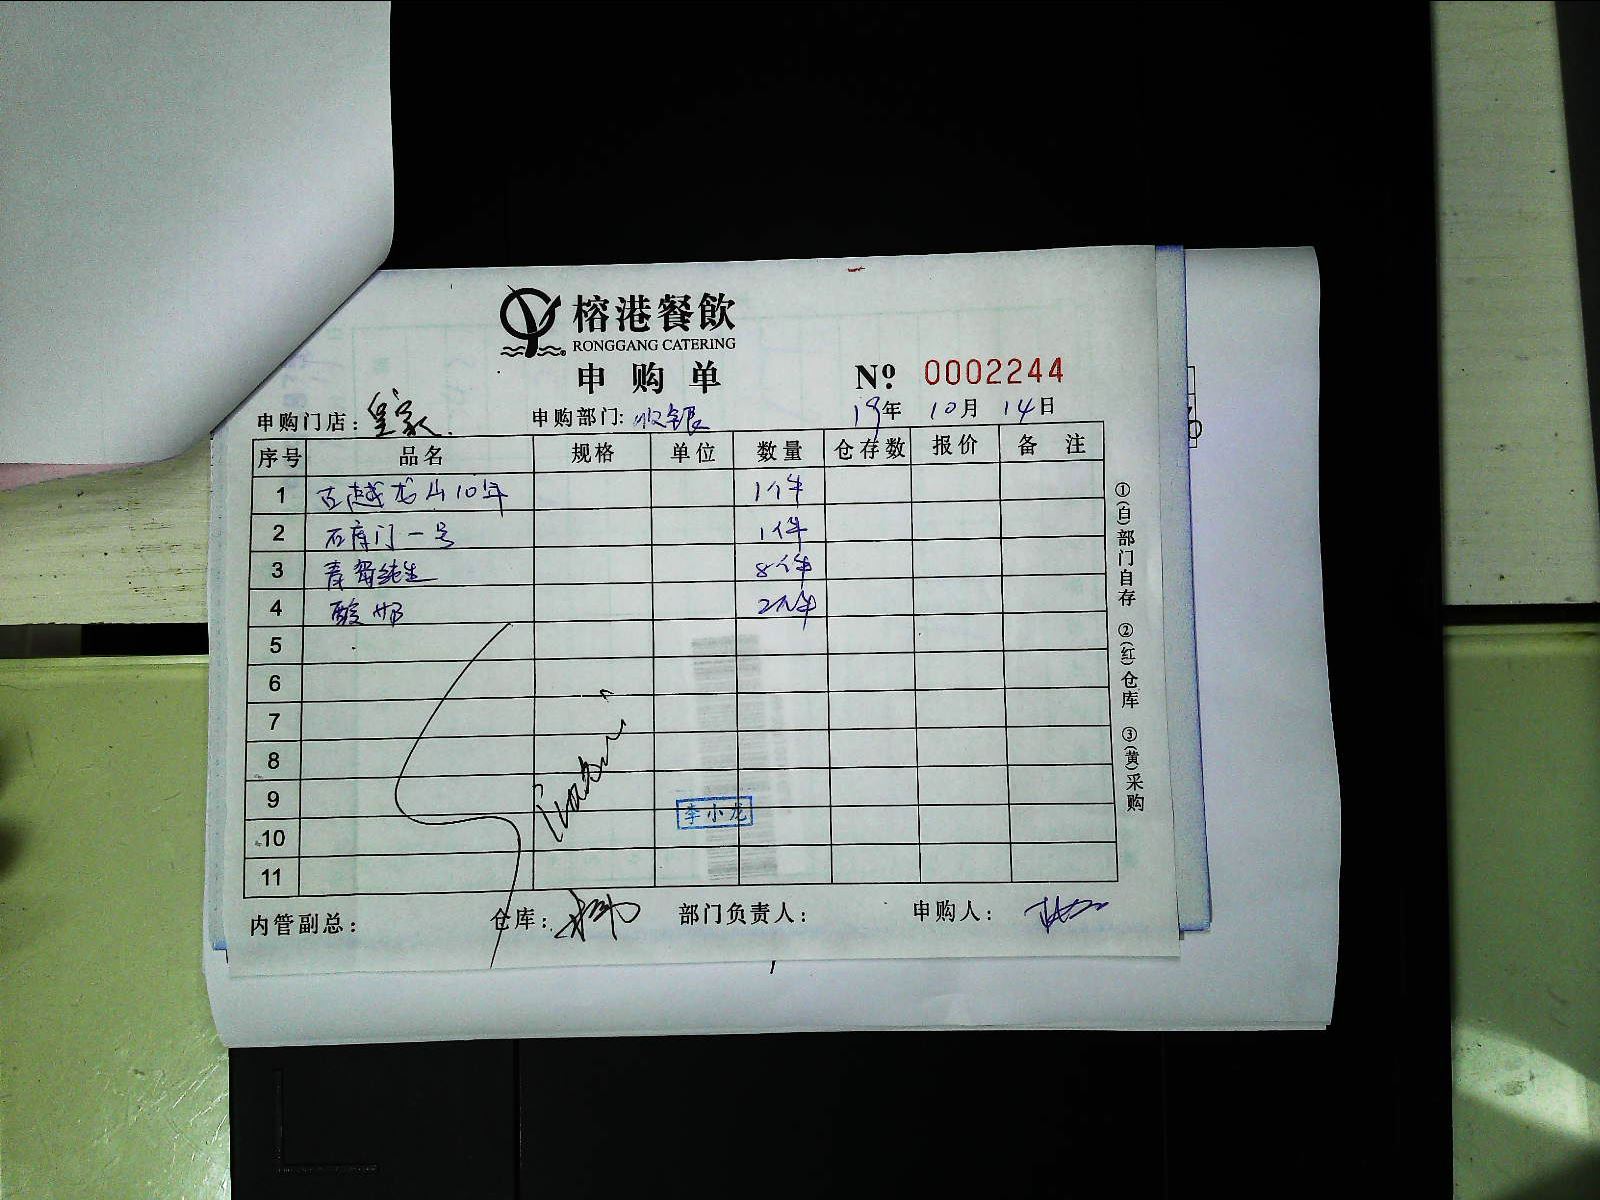 榕港餐飲
RONGGANG CATERING
申购单
Nº: 0002244
申购门店: 皇家 申购部门: 收银 19年 10月 14日
序号 品名 规格 单位 数量 仓存数 报价 备注
1 古越龙山10年 1件
2 石库门一号 1件
3 青岛纯生 8件
4 酸奶 2件
5
6
7
8
9
李小龙
10
11
内管副总: 仓库: 部门负责人: 申购人:
①(白)部门自存 ②(红)仓库 ③(黄)采购